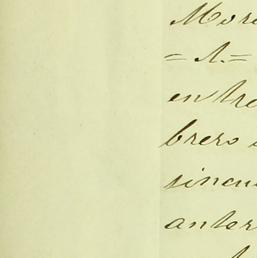 More
= A. =
entre
brero
sincu
anter